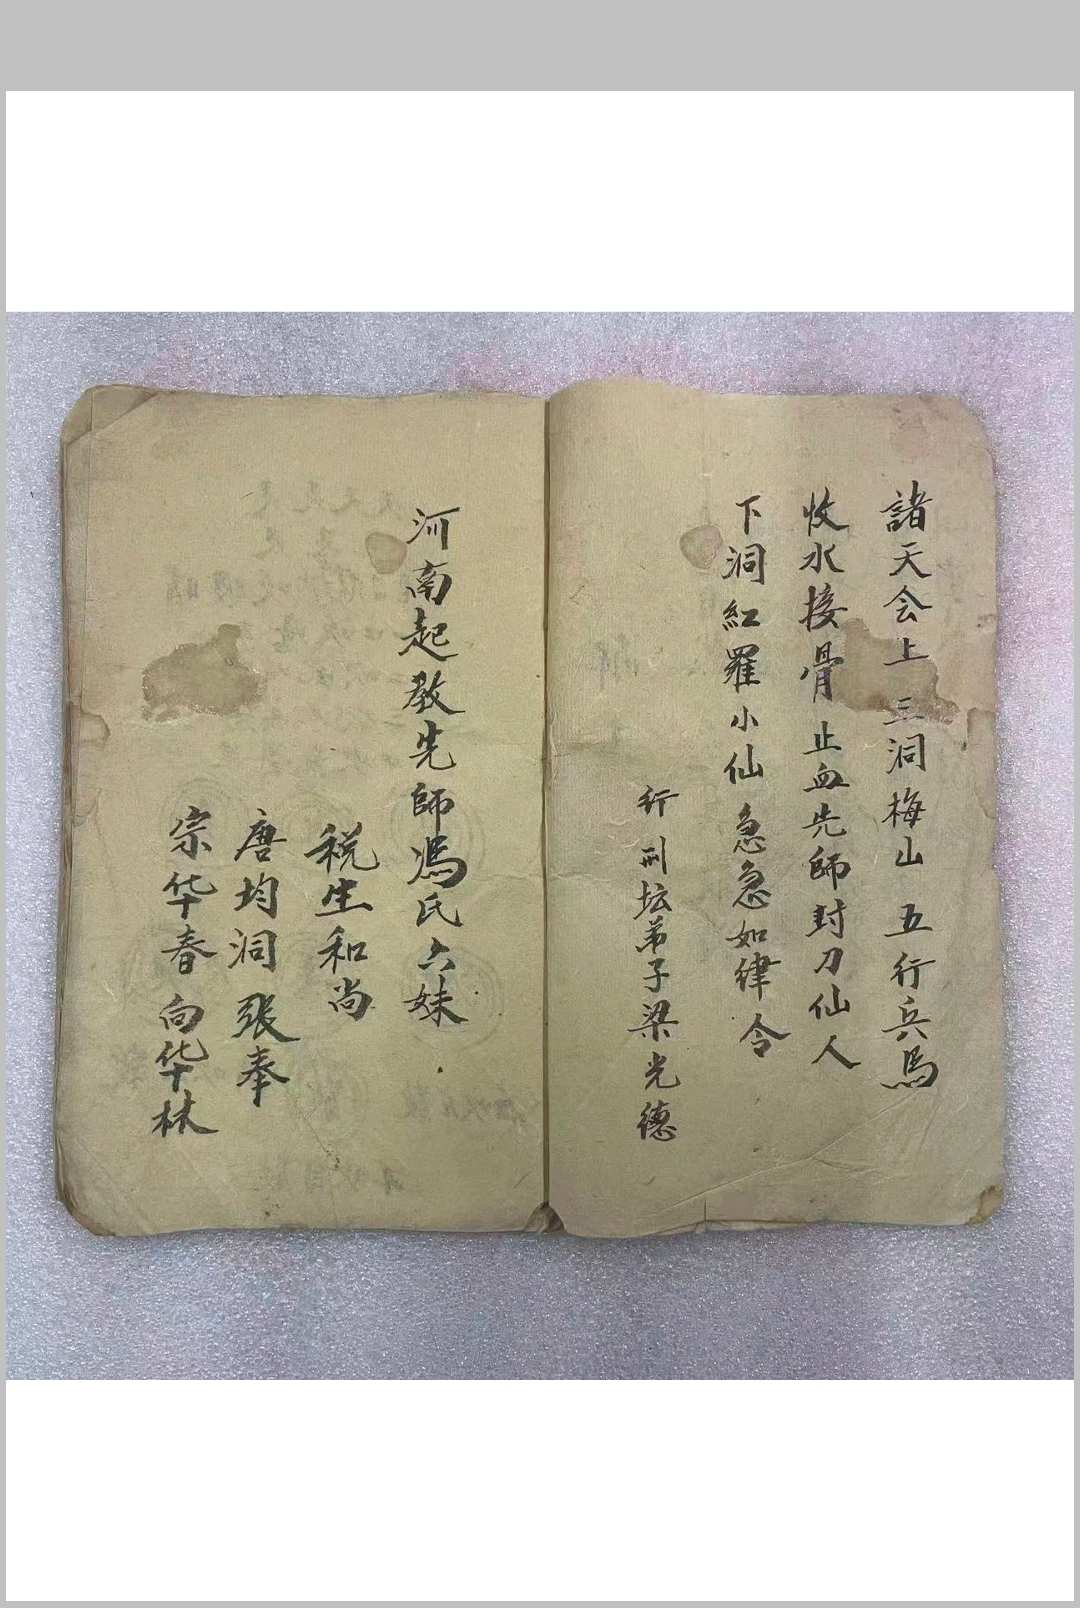 諸天会上三洞梅山五行兵馬
收水接骨止血先師封刀仙人
下洞紅羅小仙急急如律令
行刑坛弟子梁光德
河南起教先師馮氏六妹
税生和尚
唐均洞張奉
宗华春向华林